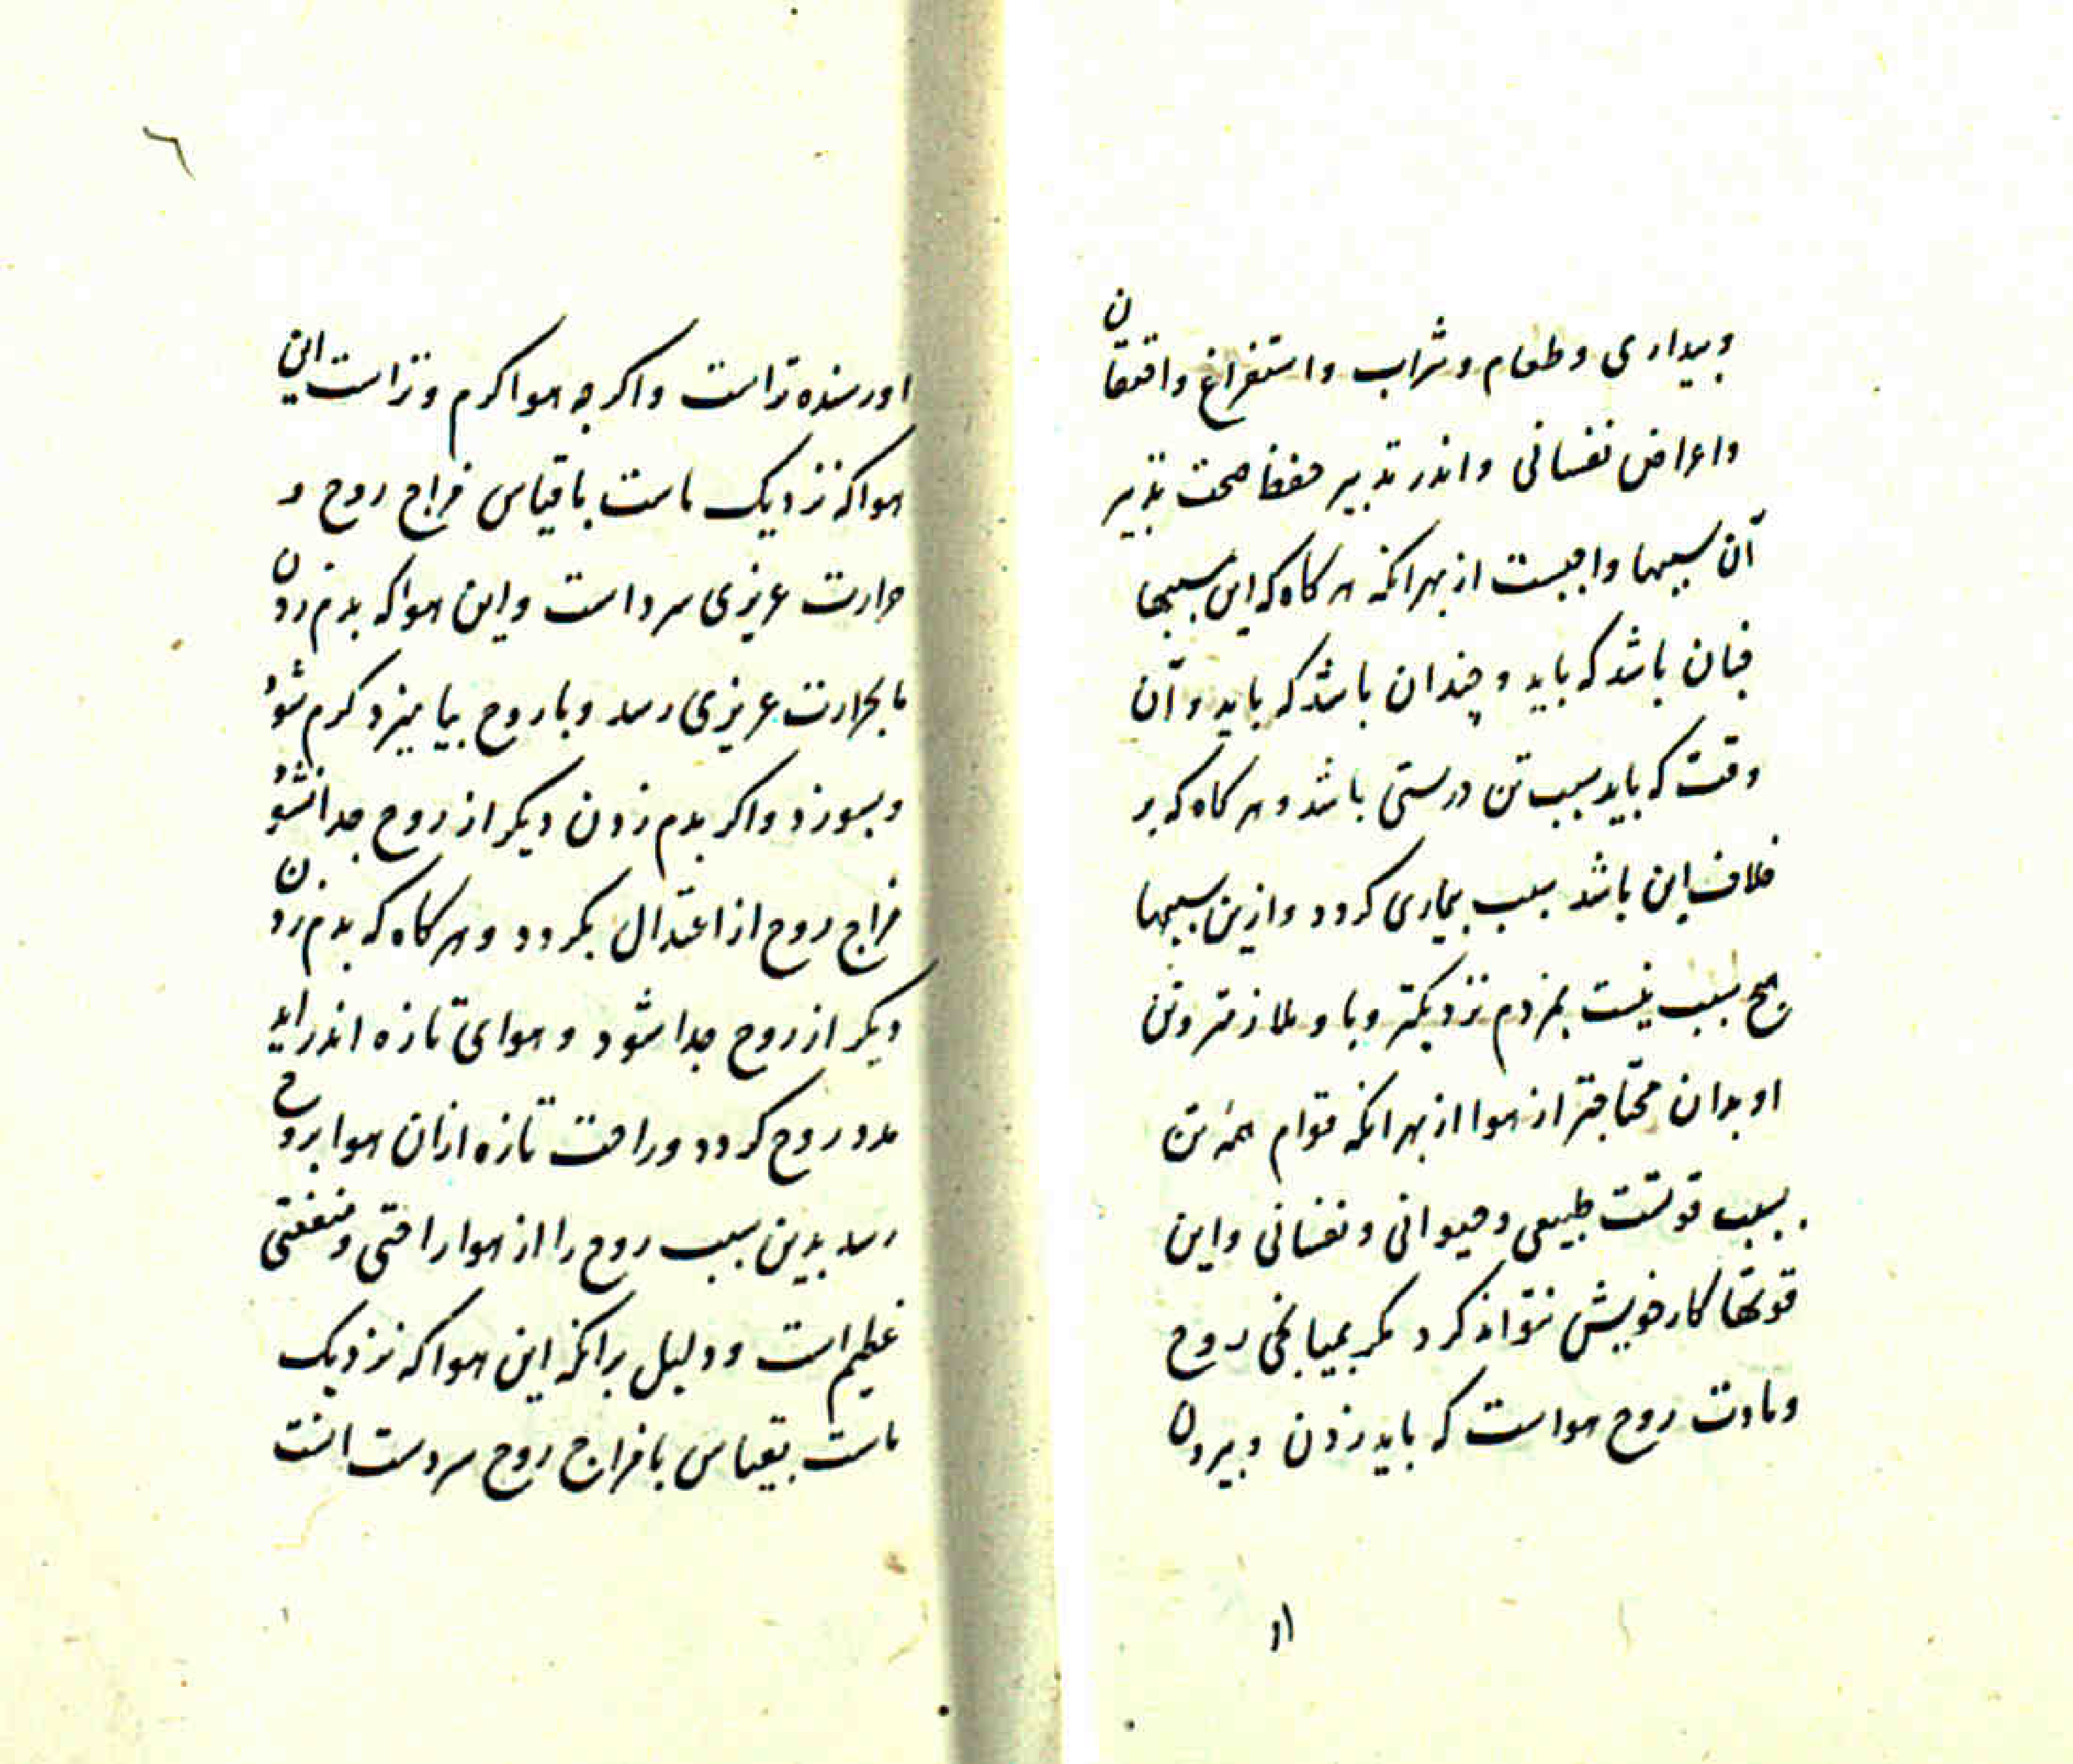 وبیداری وطعام وشراب واستفراغ واقتقان
واعراض نفسانی واندر تدبیر حفظ صحت تدبیر
آن سببها واجبست از بهرانکه هرکاه که این سببها
چنان باشد که باید و چندان باشد که باید و آن
وقت که باید سبب تن درستی باشد و هرکاه که بر
خلاف این باشد سبب بیماری کردد وازین سببها
هیچ سبب نیست بمردم نزدیکتر وبا و ملازمتر وتن
او بدان محتاجتر از هوا از بهرانکه قوام همه تن
بسبب قوتست طبیعی وحیوانی ونفسانی واین
قوتها کار خویش نتواند کرد مکر بمیانجی روح
ومادت روح هواست که باید زدن وبیرون
او
٦
اورسنده تراست واکرچه هوا کرم وتراست این
هوا که نزدیک ماست باقیاس مزاج روح و
حرارت عریزی سرد است واین هوا که بدم زدن
ما بحرارت عریزی رسد وباروح بیامیزد کرم شود
وبسوزد واکر بدم زدن دیکر از روح جدا نشود
مزاج روح از اعتدال بکردد وهرکاه که بدم زدن
دیکر از روح جدا شود وهوای تازه اندر اید
مدد روح کردد وراحت تازه ازان هوا بروح
رسد بدین سبب روح را از هوا راحتی ومنفعتی
عظیم است ودلیل برانکه این هوا که نزدیک
ماست بقیاس بامزاج روح سردست انست